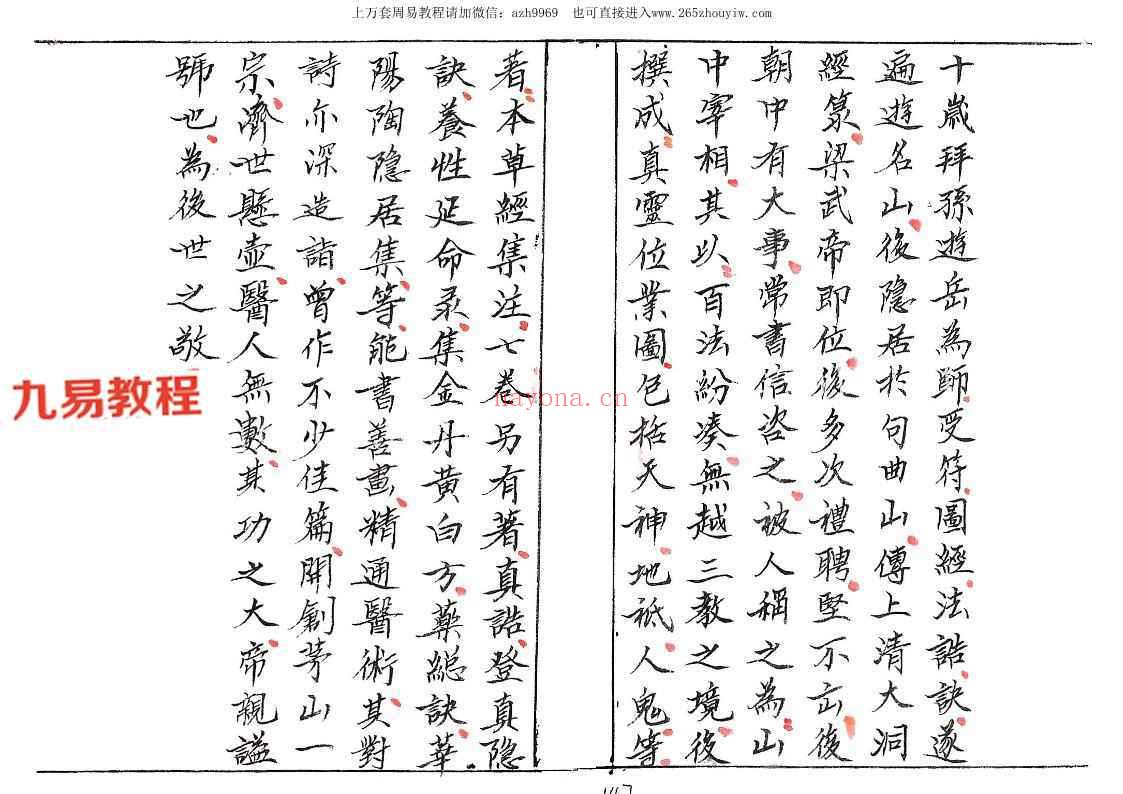 上万套周易教程请加微信：azh9969 也可直接进入www.265zhouyiw.com
十歲拜孫遊岳為師受符圖經法誥訣遂
遍遊名山後隱居於句曲山傳上清大洞
經箓梁武帝即位後多次禮聘堅不出後
朝中有大事常書信咨之被人稱之為山
中宰相其以百法紛凑無越三教之境後
撰成真靈位業圖包括天神地祇人鬼等
著本草經集注七卷另有著真誥登真隐
訣養性延命录集金丹黄白方藥總訣華
陽陶隐居集等能書善畫精通醫術其對
詩亦深造詣曾作不少佳篇開創茅山一
宗濟世懸壺醫人無數其功之大帝親謚
號也為後世之敬
九易教程
nayona.cn